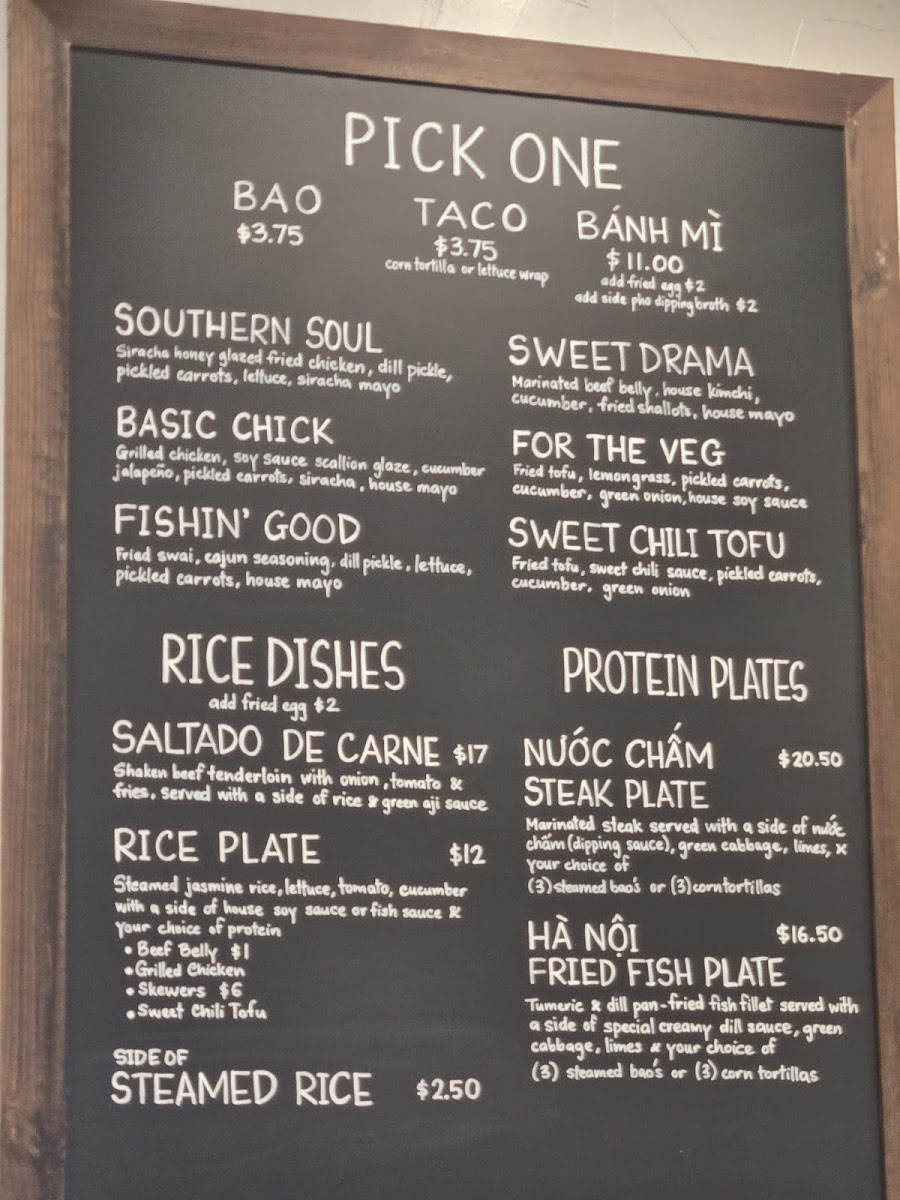 PICK ONE
BAO
$3.75
TACO
$3.75
corn tortilla or lettuce wrap
BÁNH MÌ
$11.00
add fried egg $2
add side pho dipping broth $2
SOUTHERN SOUL
Siracha honey glazed fried chicken, dill pickle,
pickled carrots, lettuce, siracha mayo
BASIC CHICK
Grilled chicken, soy sauce scallion glaze, cucumber
jalapeño, pickled carrots, siracha, house mayo
FISHIN' GOOD
Fried swai, cajun seasoning, dill pickle, lettuce,
pickled carrots, house mayo
SWEET DRAMA
Marinated beef belly, house kimchi,
cucumber, fried shallots, house mayo
FOR THE VEG
Fried tofu, lemongrass, pickled carrots,
cucumber, green onion, house soy sauce
SWEET CHILI TOFU
Fried tofu, sweet chili sauce, pickled carrots,
cucumber, green onion
RICE DISHES
add fried egg $2
SALTADO DE CARNE $17
Shaken beef tenderloin with onion, tomato &
fries, served with a side of rice & green aji sauce
RICE PLATE $12
Steamed jasmine rice, lettuce, tomato, cucumber
with a side of house soy sauce or fish sauce &
your choice of protein
• Beef Belly $1
• Grilled Chicken
• Skewers $6
• Sweet Chili Tofu
SIDE OF
STEAMED RICE $2.50
PROTEIN PLATES
NƯỚC CHẤM $20.50
STEAK PLATE
Marinated steak served with a side of nước
chấm (dipping sauce), green cabbage, limes, &
your choice of
(3) steamed bao's or (3) corn tortillas
HÀ NỘI $16.50
FRIED FISH PLATE
Tumeric & dill pan-fried fish fillet served with
a side of special creamy dill sauce, green
cabbage, limes & your choice of
(3) steamed bao's or (3) corn tortillas